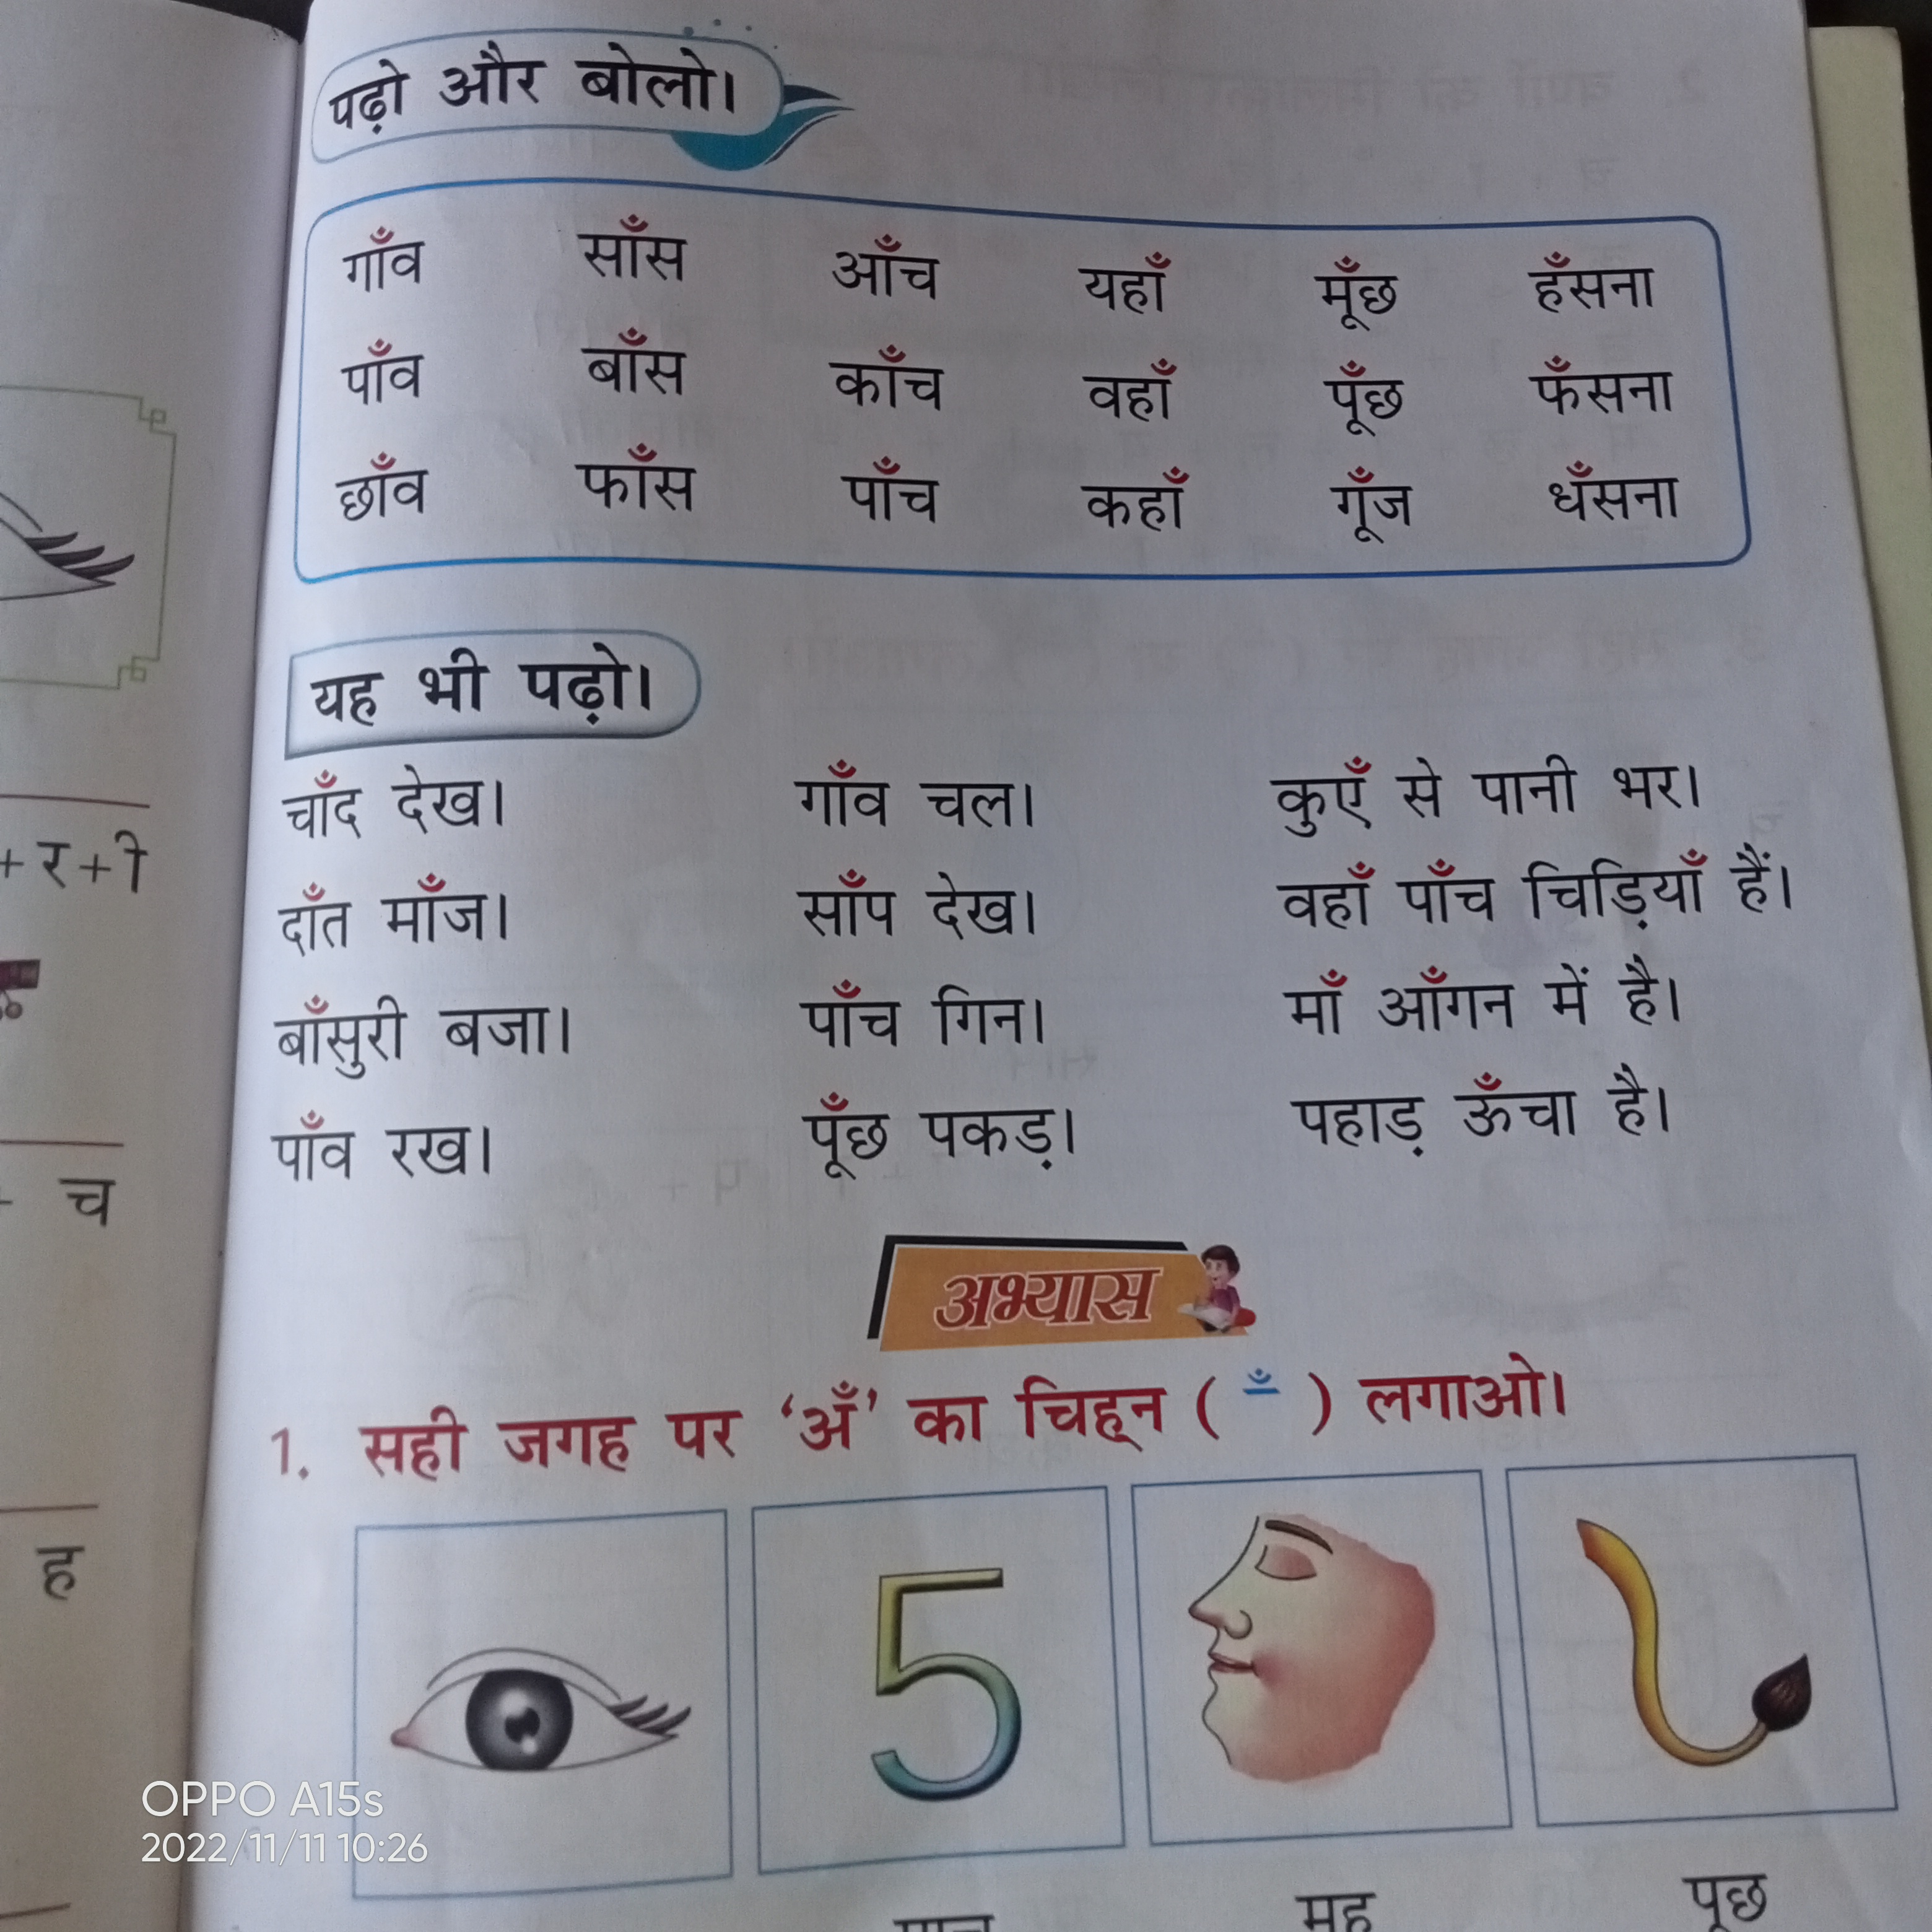 पढ़ो और बोलो।
गाँव साँस आँच यहाँ मूँछ हँसना
पाँव बाँस काँच वहाँ पूँछ फँसना
छाँव फाँस पाँच कहाँ गूँज धँसना
यह भी पढ़ो।
चाँद देख। गाँव चल। कुएँ से पानी भर।
दाँत माँज। साँप देख। वहाँ पाँच चिड़ियाँ हैं।
बाँसुरी बजा। पाँच गिन। माँ आँगन में है।
पाँव रख। पूँछ पकड़। पहाड़ ऊँचा है।
अभ्यास
1. सही जगह पर ‘अँ’ का चिह्न ( ँ ) लगाओ।
5
मुह पूछ
+ र + ी
च
ह
OPPO A15s
2022/11/11 10:26